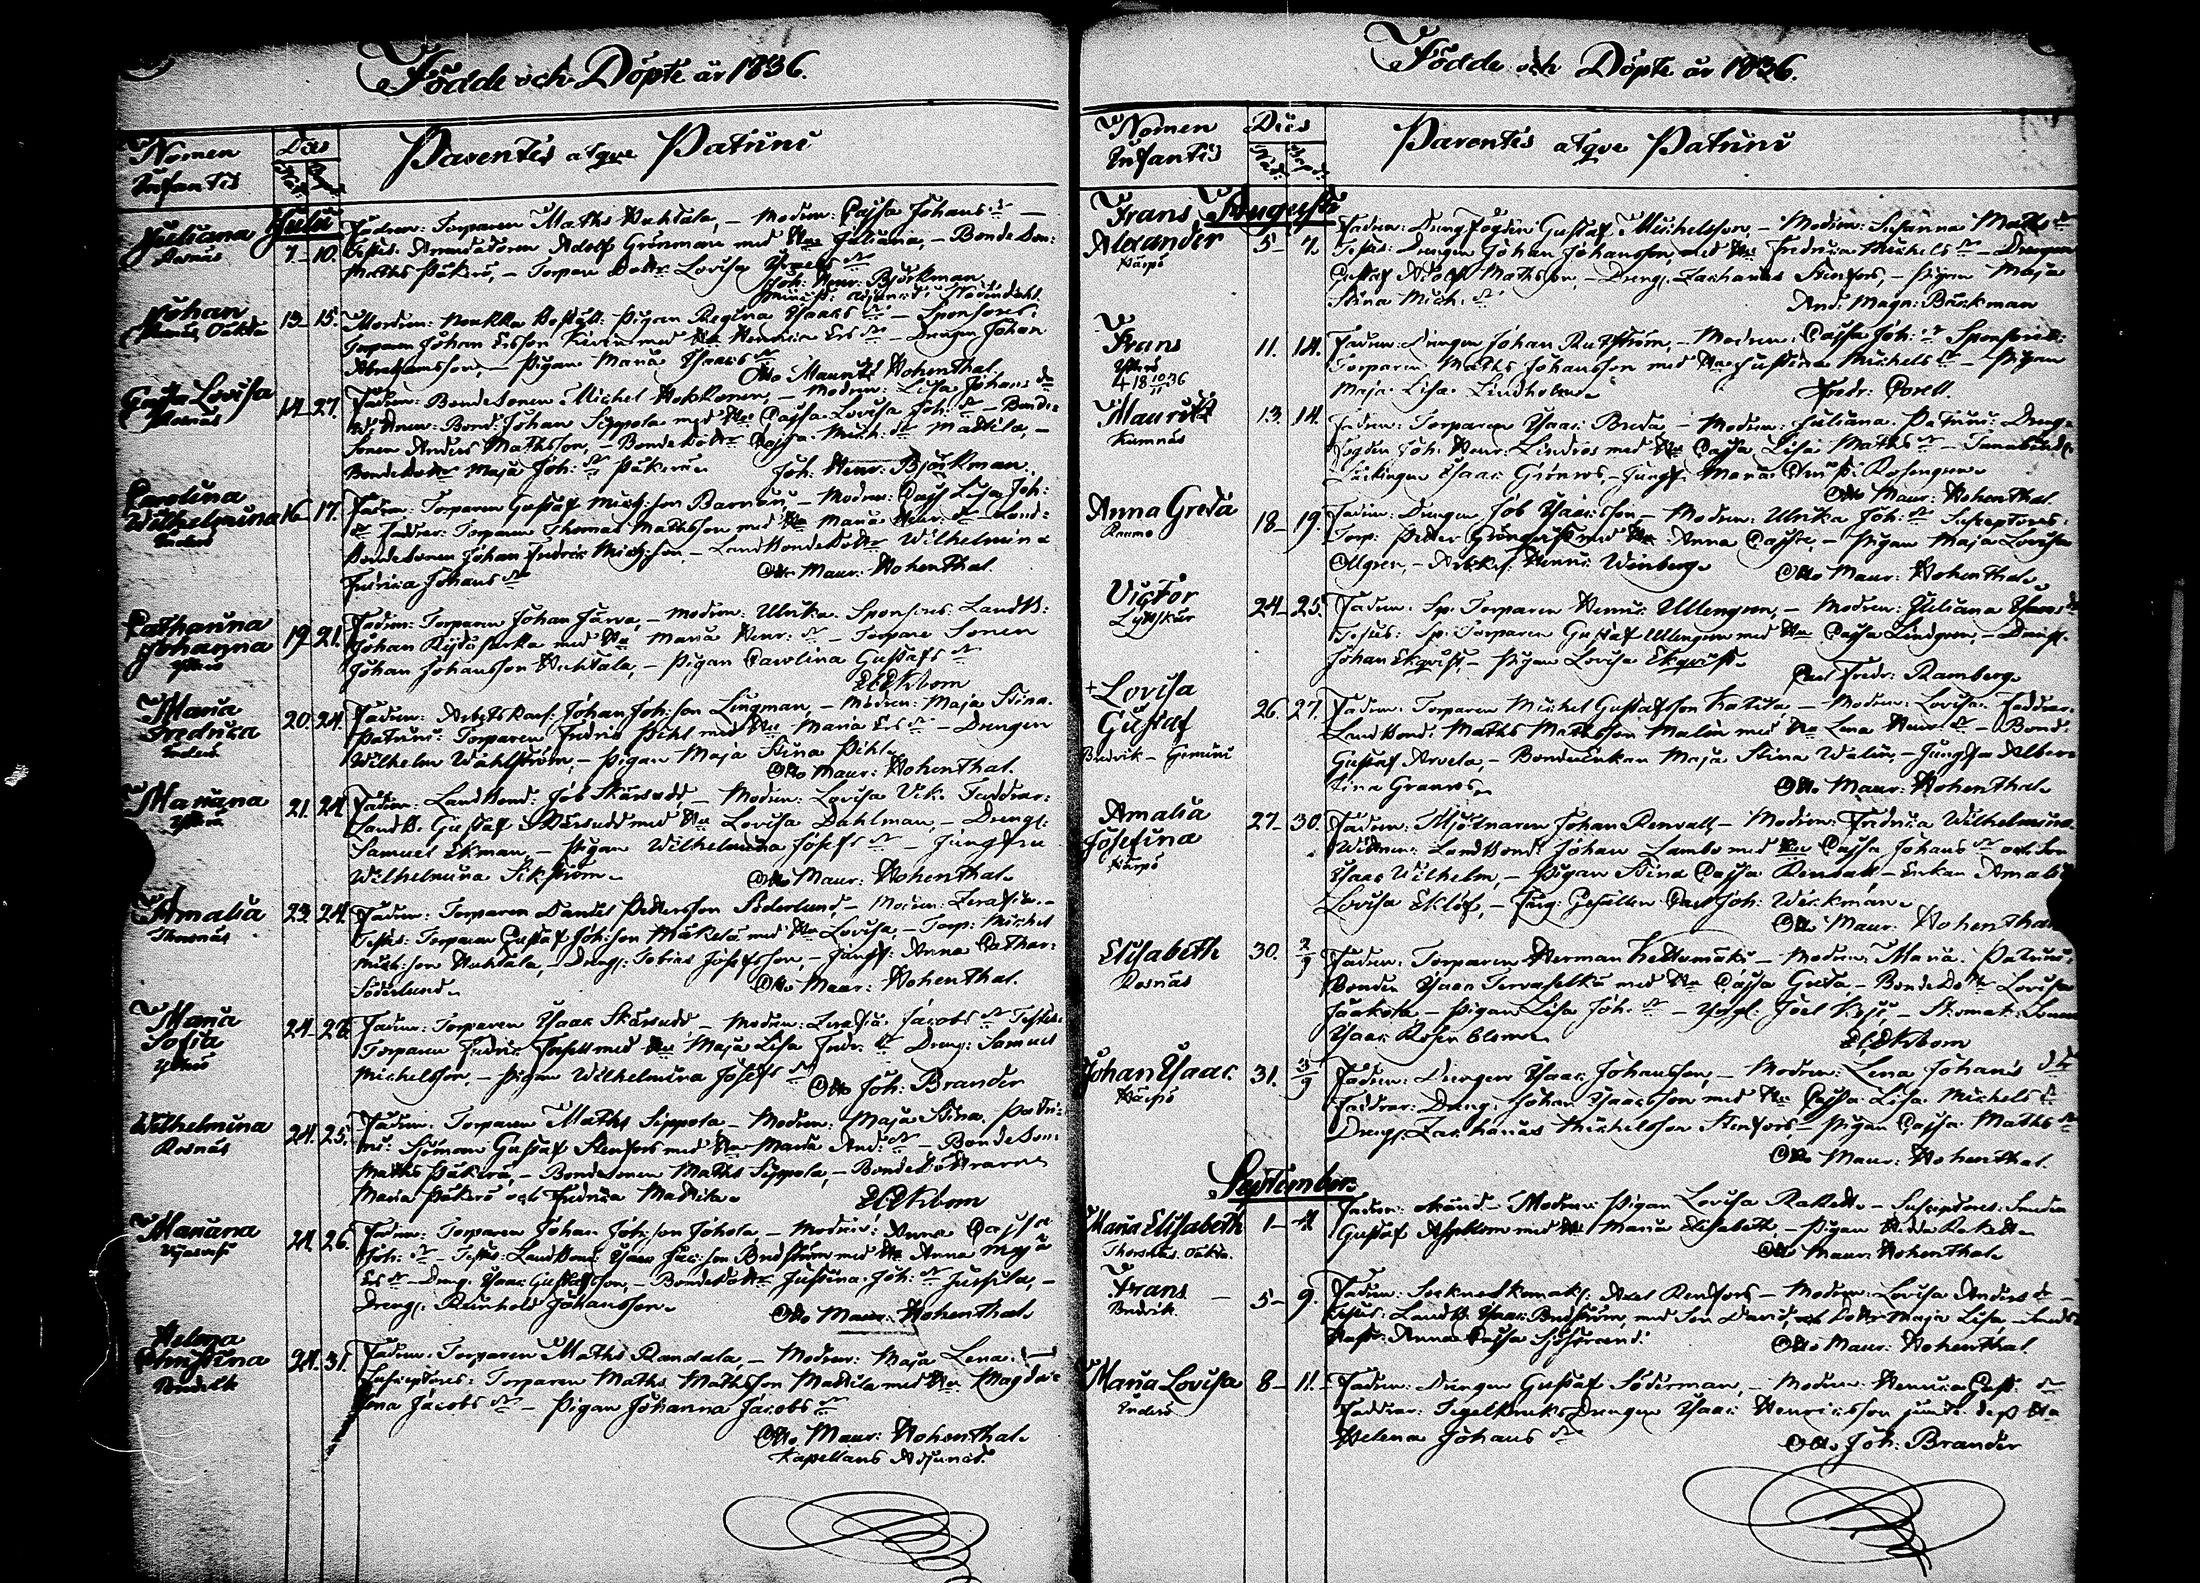 Födde och Döpte år 1836.
Nomen Infantis
Dies
Parentes atqve Patrini
Julii
Juliana
Rosnäs
7-10.
Fadren: Torparen Maths Huhtala, - Modren: Cajsa Johans dr
Testes: Arrendatoren Adolf Grönmark med Hu Juliana, - Bonde Son:
Maths Päkerö, - Torpare Dottr. Lovisa
Joh: Henr: Björkman
Johan
Oäkta
13-15.
Modren: Pigan Regina Isaacs dr - Sponsores:
Torparen Johan Ersson med Hu Henrica Ers dr - Drengen Johan
Abrahamsson, - Pigan Maria Isaacs dr
Otto Maurits Hohenthal.
Greta Lovisa
Rosnäs
14-27.
Fadren: Bondesonen Michel Hokkonen, - Modren: Lisa Johans dr
Bond: Johan Sippola med Hu Cajsa Lovisa Joh: dr - Bonde
Sonen Anders Mathsson, - Bonde Dottr Cajsa Mich: dr Mattila, -
Bonde Dottr Maja Joh: dr Päkerö.
Joh: Henr: Björkman.
Carolina
Wilhelmina
Enderö
16-17.
Fadren: Torparen Gustaf Mich:son - Modren: Cajs Lisa Joh:
dr Faddrar: Torparen Thomas Mathsson med Hu Maria Henr: dr - Land:
Bondesonen Johan Fredric Mich:son, - Landbonde Dottr Wilhelmina
Fredrica Johans dr
Otto Maur: Hohenthal.
Catharina
Johanna
Ytterö
19-21.
Fadren: Torparen Johan Järva, - Modren: Ulrika. Sponsores: Landb:
Johan med Hu Maria Henr: dr - Torpare Sonen
Johan Johansson Huhtala, - Pigan Carolina Gustafs dr
Ekbom
Maria
Fredrica
Enderö
20-24.
Fadren: Arbetskarl: Johan Joh:son Lingman, - Modren: Maja Stina.
Patrini: Torparen Fredric Pihl med Hu Maria Ers dr - Drengen
Wilhelm Wahlström, - Pigan Maja Stina Pihl
Otto Maur: Hohenthal.
Mariana
Ytterö
21-24
Fadren: Landbond: Job Skärsudd, - Modren: Lovisa Vik. Faddrar:
Landb: Gustaf Skärsudd med Hu Lovisa Dahlman, - Drengen
Samuel Ekman, - Pigan Wilhelmina Josefs dr - Jungfru
Wilhelmina Sikström.
Otto Maur: Hohenthal.
Amalia
Thorsnäs
23-24.
Fadren: Torparen Daniel Pettersson Söderlund, - Modren: Serafia. -
Testes: Torparen Gustaf Joh:son Mäkelä med Hu Lovisa, - Torp: Michel
Mich:son Huhtala, - Dreng: Tobias Josefsson, - Jungf: Anna Cathar:
Söderlund.
Otto Maur: Hohenthal.
Maria
Sofia
Ytterö
24-25.
Fadren: Torparen Isaac Skärsudd, - Modren: Serafia Jacobs dr Testes:
Torparen Fredric Forsell med Hu Maja Lisa Fredr: dr Dreng: Samuel
Michelsson, - Pigan Wilhelmina Josefs dr
Otto Joh: Brander
Wilhelmina
Rosnäs
24-25.
Fadren: Torparen Maths Sippola - Modren: Maja Stina, Patri:
ni: Sjöman Gustaf Stenfors med Hu Maria And: dr - Bonde Son:
Maths Päkerö, - Bondesonen Maths Sippola, - Bonde Döttrarne
Maria Päkerö och Fredrica Mattila.
Ekbom
Mariana
24-26.
Fadren: Torparen Johan Joh:son Johola, - Modren: Anna Cajsa
Joh: dr - Testes: Landbond: Isaac Isac:son Budström med Hu Anna Maja
Ers dr - Dreng: Isaac Gustafsson, - Bonde Dottr Justina Joh: dr Jussila, -
Dreng: Reinhold Johansson.
Otto Maur: Hohenthal.
Helena
Christina
24-31.
Fadren: Torparen Maths Randala, - Modren: Maja Lena.
Susceptores: Torparen Maths Mathsson Mattila med Hu Magda:
lena Jacobs dr - Pigan Johanna Jacobs dr
Otto Maur: Hohenthal.
Kapellans Adjunct.
Födde och Döpte år 1836.
Nomen Infantis
Dies
Parentes atqve Patrini
Augusti
Frans
Alexander
Härpö
5-7.
Fadren: Dreng Fogden Gustaf Michelsson, - Modren: Susanna Maths dr
Testes: Drengen Johan Johansson, med Hu Fredrica Michels dr - Drengen
Gustaf Adolf Mathsson, - Dreng: Zacharias Stenfors, - Pigan Maja
Stina Mich: dr
And: Magn: Bäckman
Frans
Ytterö
11.-14.
Fadren: Drengen Johan Rutström, - Modren: Cajsa Joh: dr Sponsores:
Torparen Maths Johansson med Hu Justina Michels dr - Pigan
Maja Lisa Lindholm
Fredr: Corell.
Maurits
Kumnäs
13.-14.
Fadren: Torparen Isaac Breda, - Modren: Juliana. Patrini: Dreng
Fogden Joh: Henr: Lindros med Hu Cajsa Lisa Maths dr -
Isaac Grönros, - Jungf: Maria Rosengren.
Otto Maur: Hohenthal.
Anna Greta
Raumo
18-19.
Fadren: Drengen Job Isaacsson - Modren: Ulrika Joh: dr Susceptores:
Torp: Petter Grönqvist med Hu Anna Cajsa, - Pigan Maja Lovisa
Ollgren, - Arbk: Henric Winberg.
Otto Maur: Hohenthal.
Victor
24-25.
Fadren: Sp. Torparen Henric Ullengren, - Modren: Juliana
Testes: Sp. Torparen Gustaf Ullengren med Hu Cajsa Lindgren, - Dreng:
Johan Ekqvist, - Pigan Lovisa Ekqvist.
Carl Fredr: Ramberg.
+ Lovisa
Gustaf
Bredvik - Gemini
26-27.
Fadren: Torparen Michel Gustafsson Katila, - Modren: Lovisa. Faddrar:
Landbond: Maths Mathsson Malin med Hu Lena Henr: dr - Bond:
Gustaf Arvela, - Bonde Enkan Maja Stina Walin, - Jungfru Alber:
tina Granros.
Otto Maur: Hohenthal.
Amalia
Josefina
Härpö
27-30.
Fadren: Mjölnaren Johan Renvall, - Modren: Fredrica Wilhelmina.
Landbond: Johan Lambo med Hu Cajsa Johans dr och Son
Isaac Wilhelm, - Pigan Stina Cajsa Renvall - Enkan Amalia
Lovisa Eklöf, - Gesällen Carl Joh: Wickman.
Otto Maur: Hohenthal
Elisabeth
Rosnäs
30. 2/9
Fadren: Torparen Herman Kettumäki - Modren: Maria. Patrini:
Bonden Isaac med Hu Cajsa Greta, - Bonde Dottr Lovisa
Jaakola, - Pigan Lisa Joh: dr - Joel - Skomak: Sonen
Isaac Rosenblom.
Ekbom
Johan Isaac.
Härpö
31. 3/9
Fadren: Drengen Isaac Johansson, - Modren: Lena Johans dr
Faddrar: Dreng: Johan Isaacsson med Hu Cajsa Lisa Michels dr
Dreng: Zacharias Michelsson Stenfors, - Pigan Cajsa Maths dr
Otto Maur: Hohenthal.
September.
Maria Elisabeth
Thorsnäs, Oäkta.
1-4.
Fadren: okänd - Modren: Pigan Lovisa Rakett - Susceptores: Smeden
Gustaf Asplom med Hu Maria Elisabeth, - Pigan Hedda Rakett.
Otto Maur: Hohenthal.
Frans
Bredvik.
5-9.
Fadren: Sockneskomak: Axel Renfors - Modren: Lovisa Anders dr -
Testes: Landb: Isaac Budström, med Son David, och Dottr Maja Lisa -
Anna Cajsa Sjöstrand.
Otto Maur: Hohenthal.
Maria Lovisa
Enderö
8-11.
Fadren: Drengen Gustaf Söderman, - Modren: Henrica Gust: dr
Faddrar: Tegelbruks Drengen Isaac Henricsson jemte dess Hu
Helena Johans dr
Otto Joh: Brander